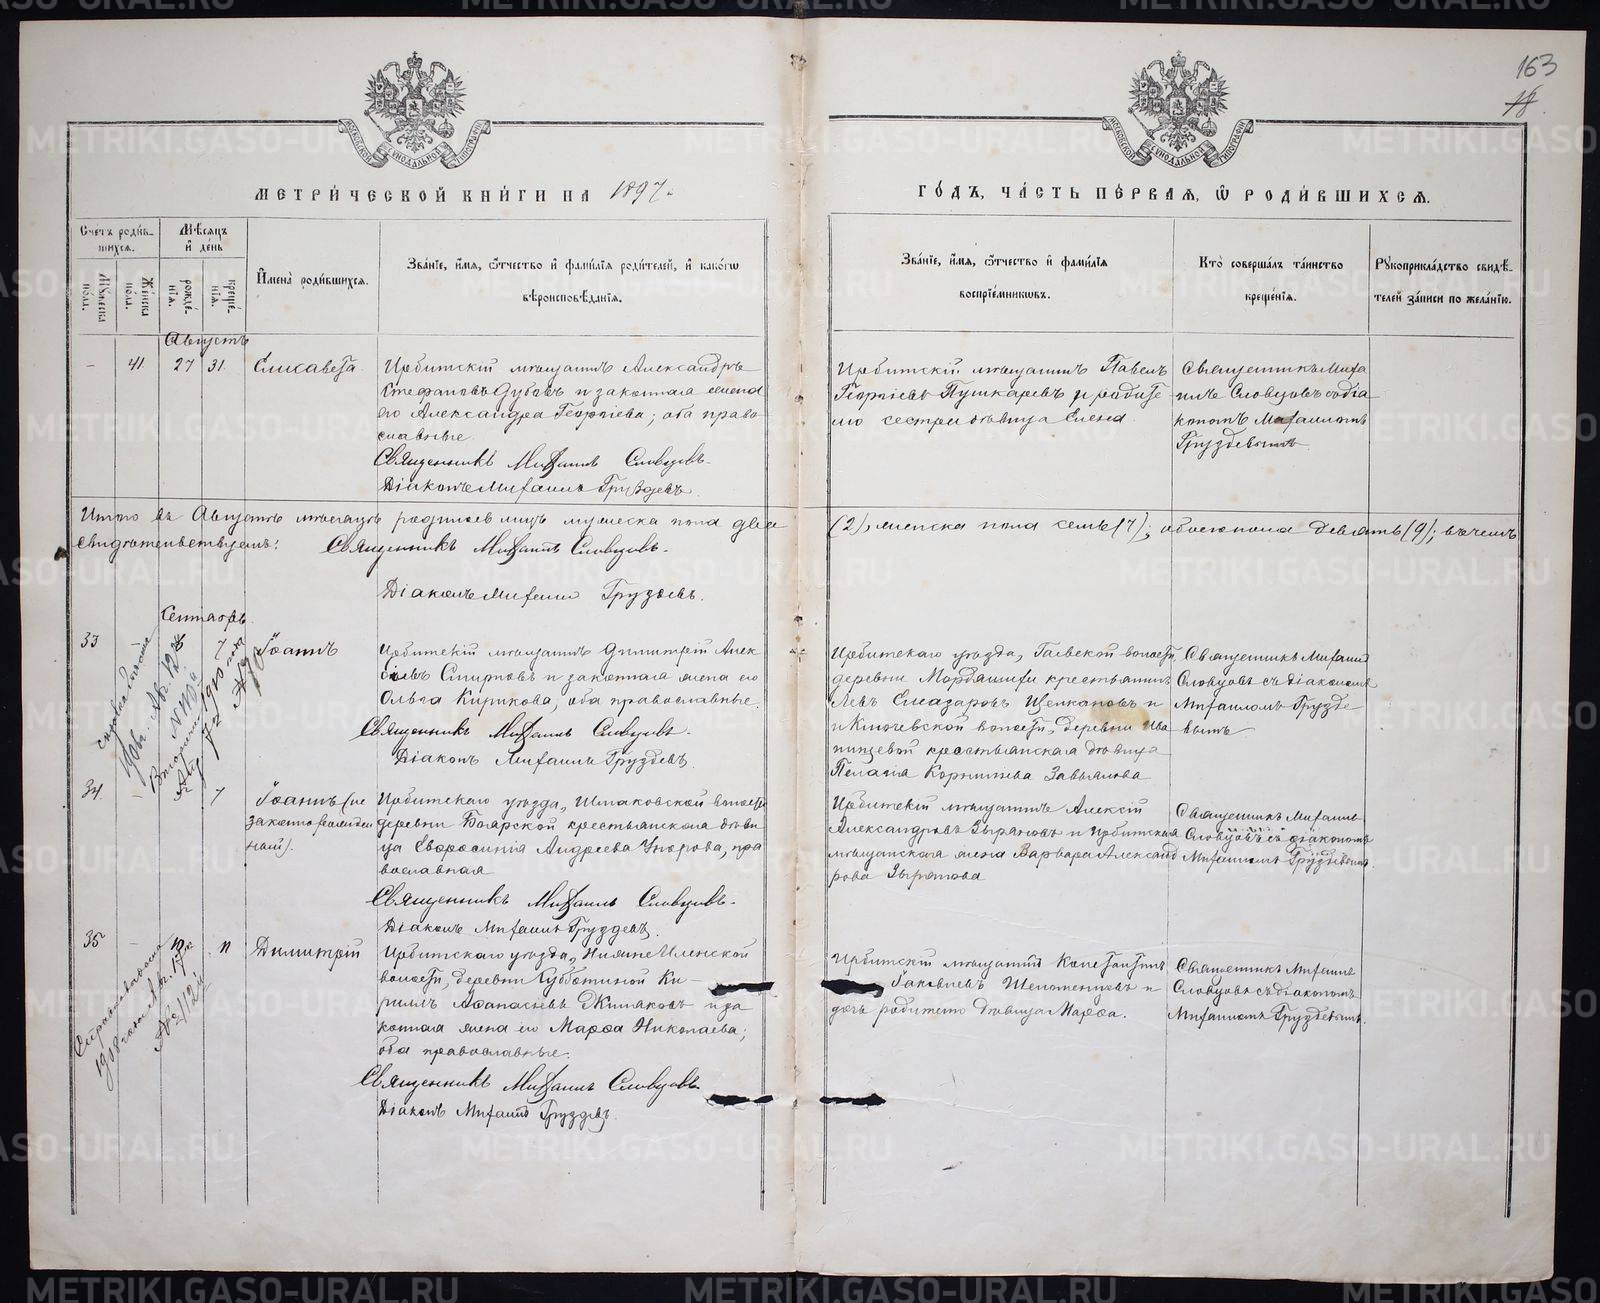 163
18
МОСКОВСКОЙ СѴНОДАЛЬНОЙ ТИПОГРАФІИ
МОСКОВСКОЙ СѴНОДАЛЬНОЙ ТИПОГРАФІИ
МЕТРИ́ЧЕСКОЙ КНИ́ГИ НА 1897
ГО́ДЪ, ЧА́СТЬ ПЕ́РВАЯ, Ѡ РОДИ́ВШИХСЯ.
Сче́тъ роди́вшихся.
Му́жеска по́ла.
Же́нска по́ла.
Мѣ́сяцъ и де́нь
рожде́нія.
креще́нія.
Имена̀ роди́вшихся.
Зва́ніе, и́мя, ѻ́тчество и фами́лія роди́телей, и како́гѡ
вѣроисповѣ́данія.
Зва́ніе, и́мя, ѻ́тчество и фами́лія
воспріе́мникѡвъ.
Кто̀ соверша́лъ та́инство
креще́нія.
Рꙋкоприкла́дство свидѣ́-
телей за́писи по жела́нію.
Августъ
- 41. 27 31. Елисавета.
Ирбитскій мѣщанинъ Александръ
Стефановъ Дубовъ и законная жена
его Александра Георгіева; оба право
славные
Священникъ Михаилъ Словцовъ.
Діаконъ Михаилъ Груздевъ.
Ирбитскій мѣщанинъ Павелъ
Георгіевъ Пушкаревъ и родите
лю сестра дѣвица Елена.
Священникъ Миха
илъ Словцовъ съ діа
кономъ Михаиломъ
Груздевымъ.
Итого въ Августѣ мѣсяцѣ родилось лицъ мужеска пола два
(2), женска пола семь (7); обоего пола девять (9); въ чемъ
свидѣтельствуемъ: Священникъ Михаилъ Словцовъ.
Діаконъ Михаилъ Груздевъ.
Сентябрь.
33 7 Іоаннъ
Ирбитскій мѣщанинъ Димитрій Алек
Смирновъ и законная жена его
Ольга Кирикова, оба православные.
Священникъ Михаилъ Словцовъ.
Діаконъ Михаилъ Груздевъ.
Ирбитскаго уѣзда, волости,
деревни крестьянинъ
Левъ Елеазаровъ и
Ключевской волости, деревни
крестьянская дѣвица
Пелагія Завьялова
Священникъ Михаилъ
Словцовъ съ діакономъ
Михаиломъ Грузде
вымъ
34. - 7 Іоаннъ (не
законнорожден
ный).
Ирбитскаго уѣзда, Шмаковской волости
деревни Боярской крестьянская дѣви
ца Евфросинія Андреева Упорова, пра
вославная
Священникъ Михаилъ Словцовъ.
Діаконъ Михаилъ Груздевъ.
Ирбитскій мѣщанинъ Алексій
Александровъ Зыряновъ и Ирбитская
мѣщанская жена Варвара Александ
рова Зырянова
Священникъ Михаилъ
Словцовъ съ діакономъ
Михаиломъ Груздевымъ.
35 - 11 Димитрій
Ирбитскаго уѣзда, Нижне-Иленской
волости, деревни Субботиной Ки-
риллъ Афанасьевъ и за
конная жена его Марфа Николаева;
оба православные.
Священникъ Михаилъ Словцовъ.
Діаконъ Михаилъ Груздевъ.
Ирбитскій мѣщанинъ Константинъ
Іаковлевъ и
дочь родителю дѣвица Марфа.
Священникъ Михаилъ
Словцовъ съ діакономъ
Михаиломъ Груздевымъ.
METRIKI.GASO-URAL.RU